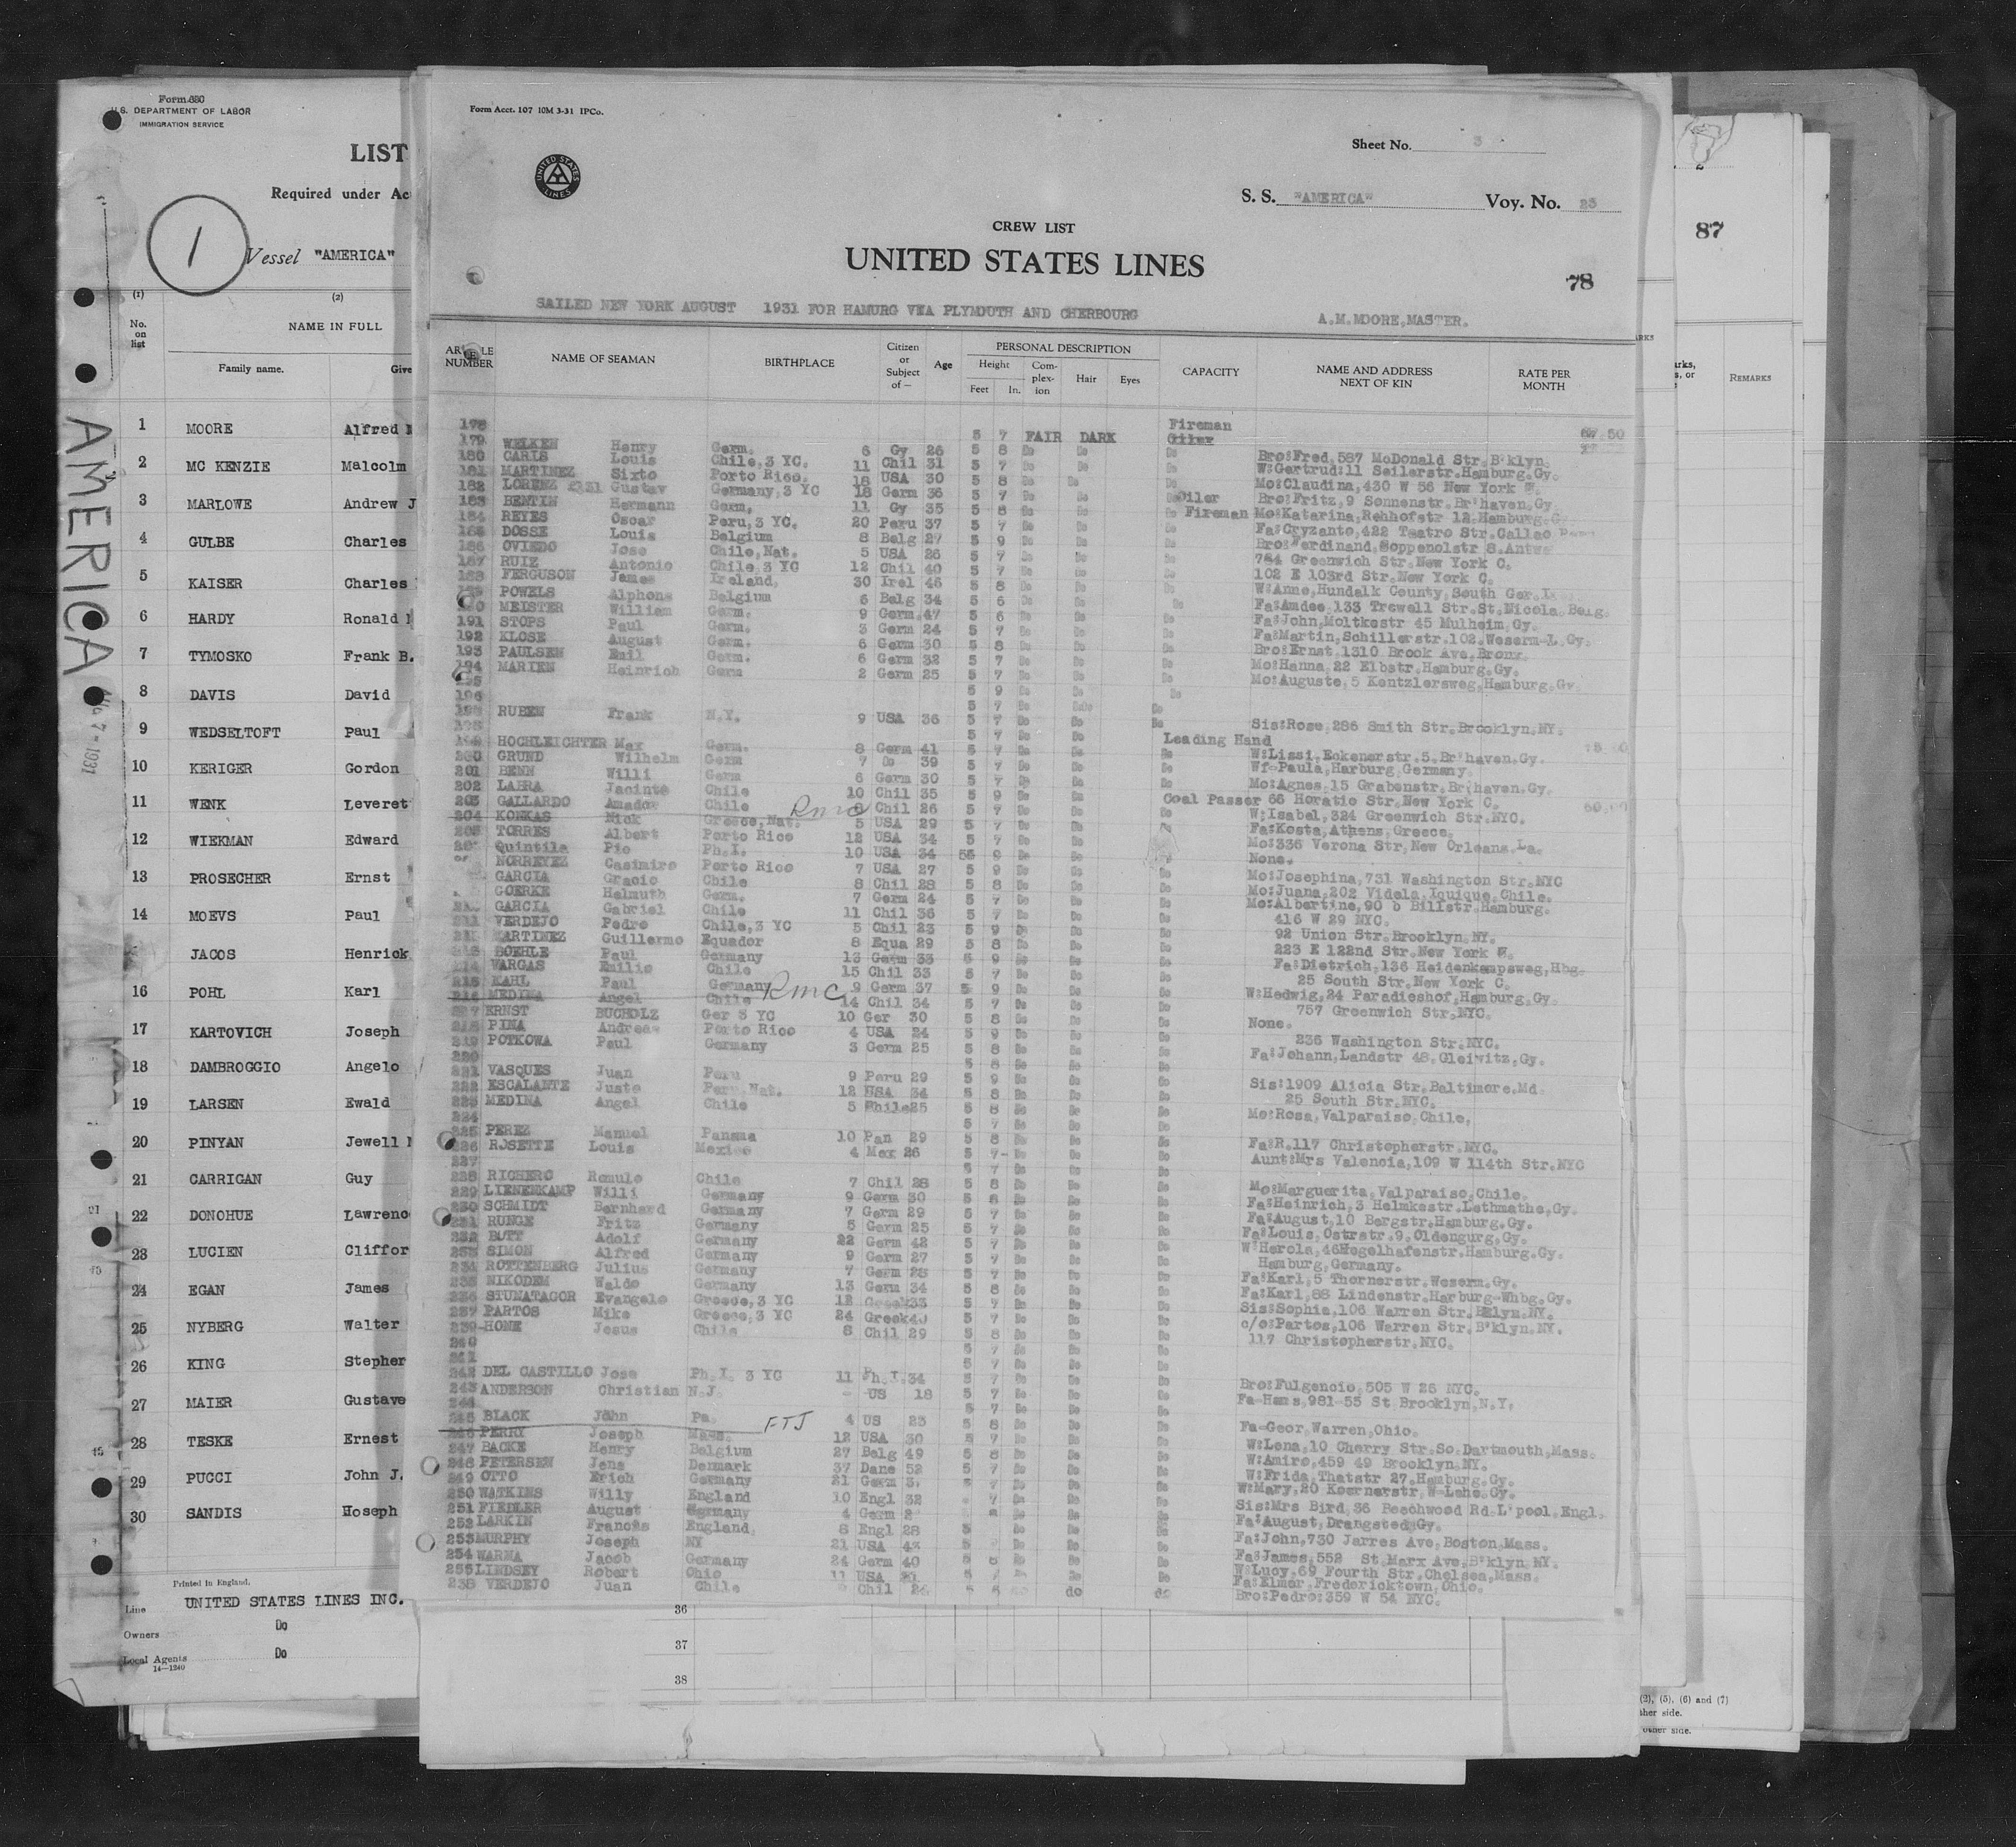 Form 680
U.S. DEPARTMENT OF LABOR
IMMIGRATION SERVICE
LIST
Required under Ac
1
Vessel "AMERICA"
(1) (2)
No. on list
NAME IN FULL
Family name. Give
1 MOORE Alfred
2 MC KENZIE Malcolm
3 MARLOWE Andrew J
4 GULBE Charles
5 KAISER Charles
6 HARDY Ronald
7 TYMOSKO Frank B.
8 DAVIS David
9 WEDSELTOFT Paul
10 KERIGER Gordon
11 WENK Leveret
12 WIEKMAN Edward
13 PROSECHER Ernst
14 MOEVS Paul
JACOS Henrick
16 POHL Karl
17 KARTOVICH Joseph
18 DAMBROGGIO Angelo
19 LARSEN Ewald
20 PINYAN Jewell
21 CARRIGAN Guy
22 DONOHUE Lawreno
23 LUCIEN Cliffor
24 EGAN James
25 NYBERG Walter
26 KING Stepher
27 MAIER Gustave
28 TESKE Ernest
29 PUCCI John J.
30 SANDIS Hoseph
Printed in England.
Line UNITED STATES LINES INC.
Owners Do
Local Agents Do
14—1240
AMERICA
Form Acct. 107 10M 3-31 IPCo.
UNITED STATES LINES
Sheet No. 3
S. S. "AMERICA" Voy. No. 23
CREW LIST
UNITED STATES LINES
78
SAILED NEW YORK AUGUST 1931 FOR HAMURG VIA PLYMOUTH AND CHERBOURG
A.M.MOORE,MASTER.
ARTICLE NUMBER NAME OF SEAMAN BIRTHPLACE Citizen or Subject of — Age PERSONAL DESCRIPTION CAPACITY NAME AND ADDRESS NEXT OF KIN RATE PER MONTH
Height Com-plex-ion Hair Eyes
Feet In.
178 5 7 FAIR DARK Fireman Oiler 50
179 WELKEN Henry Germ. 6 Gy 26 5 8 Do Do Do Bro:Fred,587 McDonald Str.B'klyn.
180 CARLS Louis Chile,3 YC. 11 Chil 31 5 7 Do Do W:Gertrud:11 Seilerstr.Hamburg.Gy.
181 MARTINEZ Sixto Porto Rico. 18 USA 30 5 8 Do Do Mo:Claudina,430 W 56 New York
182 LORENZ Gustav Germany,3 YC 18 Germ 36 5 7 Do Do Oiler Bro:Fritz,9 Sonnenstr.Br'haven.Gy.
183 BENTIN Hermann Germ. 11 Gy 35 5 8 Do Do Do Fireman Mo:Katarina,Rehhofstr 12.Hamburg.
184 REYES Oscar Peru,3 YC. 20 Peru 37 5 7 Do Do Fa:Cryzanto,422 Teatro Str.Callao
185 DOSSE Louis Belgium 8 Belg 27 5 9 Do Do Bro:Ferdinand,Soppenolstr 8.Antwe
186 OVIEDO Jose Chile,Nat. 5 USA 26 5 7 Do Do 784 Greenwich Str.New York C.
187 RUIZ Antonio Chile,3 YC 12 Chil 40 5 7 Do Do 102 E 103rd Str.New York C.
188 FERGUSON James Ireland, 30 Irel 46 5 8 Do Do W:Anne,Hundalk County,South Ger.
POWELS Alphons Belgium 6 Belg 34 5 6 Do Do Fa:Amdee,133 Trewell Str.St.Nicola.Belg.
190 MEISTER William Germ. 9 Germ.47 5 6 Do Do Fa:John,Moltkestr 45 Mulheim,Gy.
191 STOPS Paul Germ. 3 Germ 24 5 7 Do Do Fa:Martin,Schillerstr.102,Weserm-L.Gy.
192 KLOSE August Germ. 6 Germ 30 5 8 Do Do Bro:Ernst,1310 Brook Ave,Bronx.
193 PAULSEN Emil Germ. 6 Germ 32 5 7 Do Do Mo:Hanna,22 Elbstr.Hamburg.Gy.
194 MARIEN Heinrich Germ 2 Germ 25 5 7 Do Do Mo:Auguste,5 Kentzlersweg,Hamburg.Gy
195
196
RUBEN Frank N.Y. 9 USA 36 5 7 Do Do Do Sis:Rose,286 Smith Str.Brooklyn.NY.
Leading Hand
HOCHLEICHTER Max Germ. 8 Germ 41 5 7 Do Do W:Lissi,Eckenerstr.5.Br'haven.Gy.
200 GRUND Wilhelm Germ 7 Do 39 5 7 Do Do Wf-Paula,Harburg,Germany.
201 BENN Willi Germ 6 Germ 30 5 7 Do Do Mo:Agnes,15 Grabenstr.Br'haven.Gy.
202 LABRA Jacinto Chile 10 Chil 35 5 9 Do Do Coal Passer 66 Horatio Str.New York C.
203 GALLARDO Amador Chile Rmc 8 Chil 26 5 7 Do Do W:Isabel,324 Greenwich Str.NYC.
204 KONKAS Nick Greece,Nat. 5 USA 29 5 7 Do Do Fa:Kosta,Athens,Greece.
205 TORRES Albert Porto Rico 12 USA 34 5 7 Do Do Mo:336 Verona Str,New Orleans,La.
Quintila Pio Ph.I. 10 USA 34 55 9 Do Do None.
NORREYEZ Casimiro Porto Rico 7 USA 27 5 9 Do Do Mo:Josephina,731 Washington Str.NYC
GARCIA Gracio Chile 8 Chil 28 5 8 Do Do Mo:Juana,202 Videla,Iquique,Chile.
GOERKE Helmuth Germ. 7 Germ 24 5 7 Do Do Mo:Albertine,90 b Billstr.Hamburg.
GARCIA Gabriel Chile 11 Chil 36 5 7 Do Do 416 W 29 NYC.
211 VERDEJO Pedro Chile,3 YC 5 Chil 23 5 9 Do Do 92 Union Str.Brooklyn.NY.
MARTINEZ Guillermo Equador 8 Equa 29 5 8 Do Do 223 E 122nd Str.New York
213 BOEHLE Paul Germany 13 Germ 33 5 9 Do Do Fa:Dietrich,136 Heidenkampsweg,Hbg.
214 VARGAS Emilio Chile 15 Chil 33 5 7 Do Do 25 South Str.New York C.
215 KAHL Paul Germany Rmc 9 Germ 37 5 9 Do Do W:Hedwig,24 Paradieshof,Hamburg.Gy.
216 MEDINA Angel Chile 14 Chil 34 5 7 Do Do 757 Greenwich Str.NYC.
217 ERNST BUCHOLZ Ger 3 YC 10 Ger 30 5 8 Do Do None.
218 PINA Andreas Porto Rico 4 USA 24 5 9 Do Do 236 Washington Str.NYC.
219 POTKOWA Paul Germany 3 Germ 25 5 8 Do Do Fa:Johann,Landstr 48.Gleiwitz,Gy.
220
221 VASQUES Juan Peru 9 Peru 29 5 9 Do Do Sis:1909 Alicia Str.Baltimore,Md.
222 ESCALANTE Juste Peru,Nat. 12 USA 34 5 8 Do Do 25 South Str.NYC.
223 MEDINA Angel Chile 5 Chile25 5 8 Do Do Mo:Rosa,Valparaiso,Chile,
224
225 PEREZ Manuel Panama 10 Pan 29 5 8 Do Do Fa:R.117 Christopherstr.NYC.
226 ROSETTE Louis Mexico 4 Mex 26 5 7 Do Do Aunt:Mrs Valencia,109 W 114th Str.NYC
227
228 RICHERO Romulo Chile 7 Chil 28 5 8 Do Do Mo:Marguerita,Valparaiso,Chile.
229 LIENENKAMP Willi Germany 9 Germ 30 5 8 Do Do Fa:Heinrich,3 Helmkestr.Lethmathe,Gy.
230 SCHMIDT Bernhard Germany 7 Germ 29 5 7 Do Do Fa:August,10 Bergstr.Hamburg.Gy.
231 RUNGE Fritz Germany 5 Germ 25 5 7 Do Do Fa:Louis,Ostrstr.9.Oldengurg,Gy.
232 BUTT Adolf Germany 22 Germ 42 5 7 Do Do W:Herola,46Hegelhafenstr.Hamburg.Gy.
233 SIMON Alfred Germany 9 Germ 27 5 7 Do Do Hamburg,Germany.
234 ROTTENBERG Julius Germany 7 Germ 28 5 7 Do Do Fa:Karl,5 Thornerstr.Weserm.Gy.
235 NIKODEM Waldo Germany 13 Germ 34 5 8 Do Do Fa:Karl,88 Lindenstr.Harburg-Whbg.Gy.
236 STUMATAGOR Evangelo Greece,3 YC 12 Greek33 5 7 Do Do Sis:Sophia,106 Warren Str.BKlyn.NY.
237 PARTOS Mike Greece,3 YC 24 Greek40 5 7 Do Do c/o:Partos,106 Warren Str.B'klyn.NY.
239-HONE Jesus Chile 8 Chil 29 5 8 Do Do 117 Christopherstr.NYC.
240
241
242 DEL CASTILLO Jose Ph.I. 3 YC 11 Ph.I.34 5 7 Do Do Bro:Fulgencio,505 W 26 NYC.
243 ANDERSON Christian N.J. - US 18 5 7 Do Do Fa-Hans,981-55 St Brooklyn,N.Y.
244
245 BLACK John Pa. FTJ 4 US 23 5 8 Do Do Fa-Geor,Warren,Ohio.
246 PERRY Joseph Mass. 12 USA 30 5 7 Do Do W:Lena,10 Cherry Str.So.Dartmouth,Mass.
247 BACKE Henry Belgium 27 Belg 49 5 8 Do Do W:Amiro,459 49 Brooklyn.NY.
248 PETERSEN Jens Denmark 37 Dane 52 5 7 Do Do W:Frida,Thatstr 27.Hamburg.Gy.
249 OTTO Erich Germany 21 Germ 5 7 Do Do W:Mary,20 Koernerstr.W-Lehe.Gy.
250 WATKINS Willy England 10 Engl 32 7 Do Do Sis:Mrs Bird,36 Beechwood Rd.L'pool.Engl.
251 FIEDLER August Germany 4 Germ Do Do Fa:August,Drangsted.Gy.
252 LARKIN Francis England. 8 Engl 28 5 Do Do Fa:John,730 Jarres Ave,Boston,Mass.
253 MURPHY Joseph NY 21 USA 43 5 Do Do Fa:James,552 St Marx Ave,B'klyn.NY.
254 WARMA Jacob Germany 24 Germ 40 5 Do Do W:Lucy,69 Fourth Str.Chelsea,Mass.
255 LINDSEY Robert Ohio 11 USA 5 Do Do Fa:Elmer,Fredericktown,Ohio.
VERDEJO Juan Chile Chil do do Bro:Pedro:359 W 54 NYC.
36
37
38
87
REMARKS
(2), (5), (6) and (7)
other side.